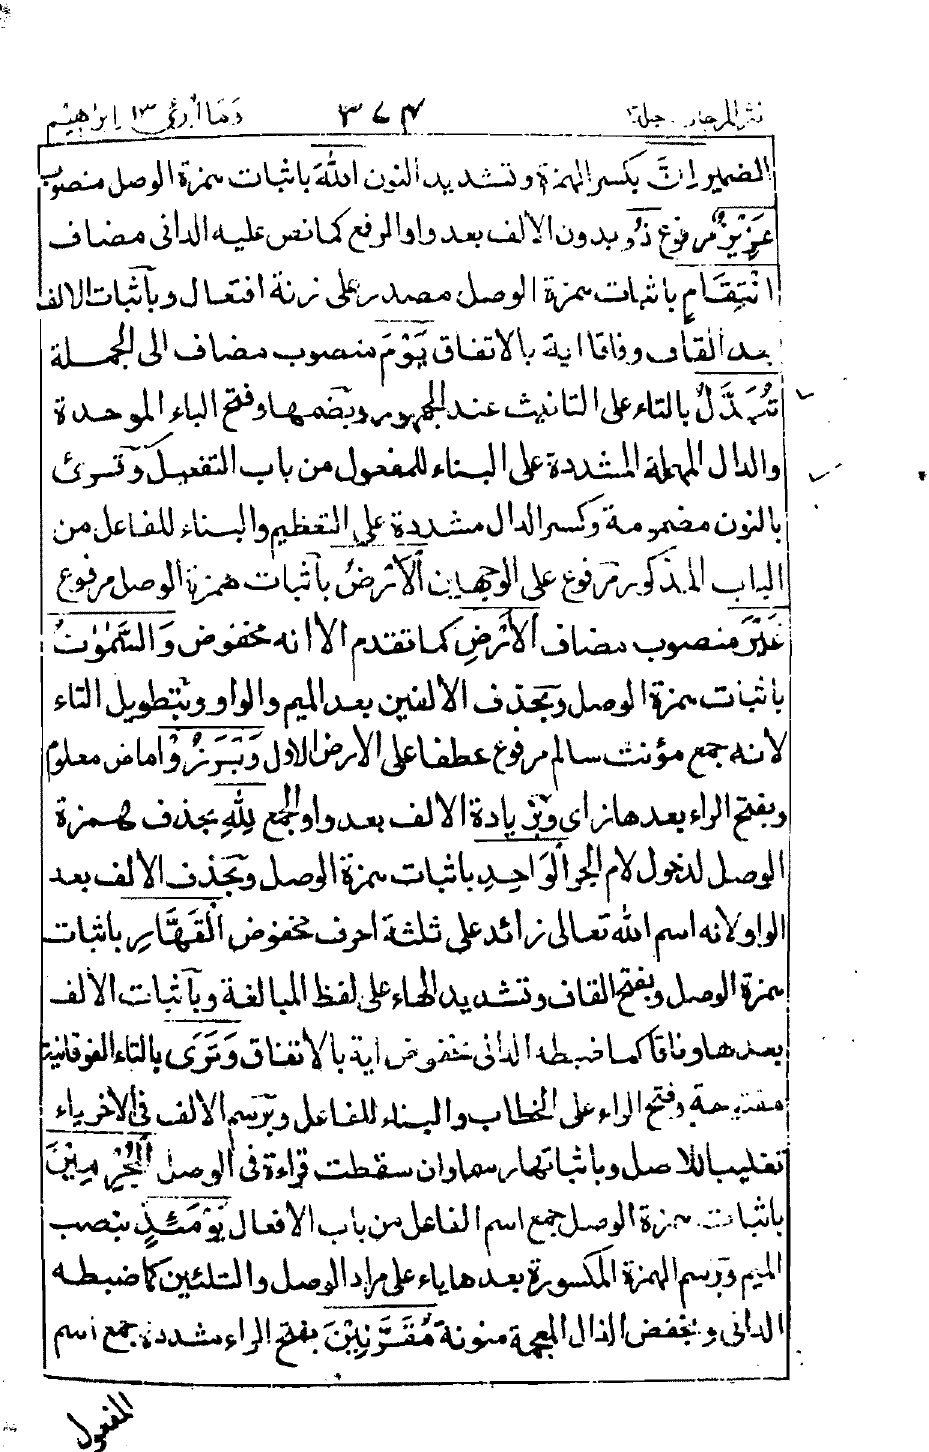 نثر المرجان جلد٣ ٣٧٤ وما أبرئ ١٣ ابراهيم
الضمير اِنَّ بكسر الهمزة وتشديد النون اللهَ باثبات همزة الوصل منصوب
عَزِيْزٌ مرفوع ذُو بدون الالف بعد واو الرفع كما نص عليه الدانى مضاف
انْتِقَامٍ باثبات همزة الوصل مصدر على زنة افتعال وبآثبات الالف
بعد القاف وفاقا اية بالاتفاق يَوْمَ منصوب مضاف الى الجملة
تُبَدَّلُ بالتاء على التانيث عند الجمهور وبضمها وفتح الباء الموحدة
والدال المهملة المشددة على البناء للمفعول من باب التفعيل وقرئ
بالنون مضمومة وكسر الدال مشددة على التعظيم والبناء للفاعل من
الباب المذكور مرفوع على الوجهين الْاَرْضُ بآثبات همزة الوصل مرفوع
غَيْرَ منصوب مضاف الْاَرْضِ كما تقدم الا انه مخفوض وَالسَّمٰوٰتُ
باثبات همزة الوصل وبحذف الالفين بعد الميم والواو وبتطويل التاء
لانه جمع مؤنث سالم مرفوع عطفا على الارض الاول وَبَرَزُوْا ماض معلوم
وبفتح الراء بعدها زاى وبزيادة الالف بعد واو الجمع لِلّٰهِ بحذف همزة
الوصل لدخول لام الجر الْوَاحِدِ باثبات همزة الوصل وبحذف الالف بعد
الواو لانه اسم الله تعالى زائد على ثلثة احرف مخفوض الْقَهَّارِ باثبات
همزة الوصل وبفتح القاف وتشديد الهاء على لفظ المبالغة وبآثبات الالف
بعدها وفاقا كما ضبطه الدانى مخفوض اية بالاتفاق وَتَرَى بالتاء الفوقانية
مفتوحة وفتح الراء على الخطاب والبناء للفاعل وبرسم الالف فى الاخر ياء
تغليبا للاصل وباثباتها رسما وان سقطت قراءة فى الوصل الْمُجْرِمِيْنَ
باثبات همزة الوصل جمع اسم الفاعل من باب الافعال يَوْمَئِذٍ بنصب
الميم وبرسم الهمزة المكسورة بعدها ياء على مراد الوصل والتليين كما ضبطه
الدانى وبخفض الذال المعجمة منونة مُقَرَّنِيْنَ بفتح الراء مشددة جمع اسم
المفعول